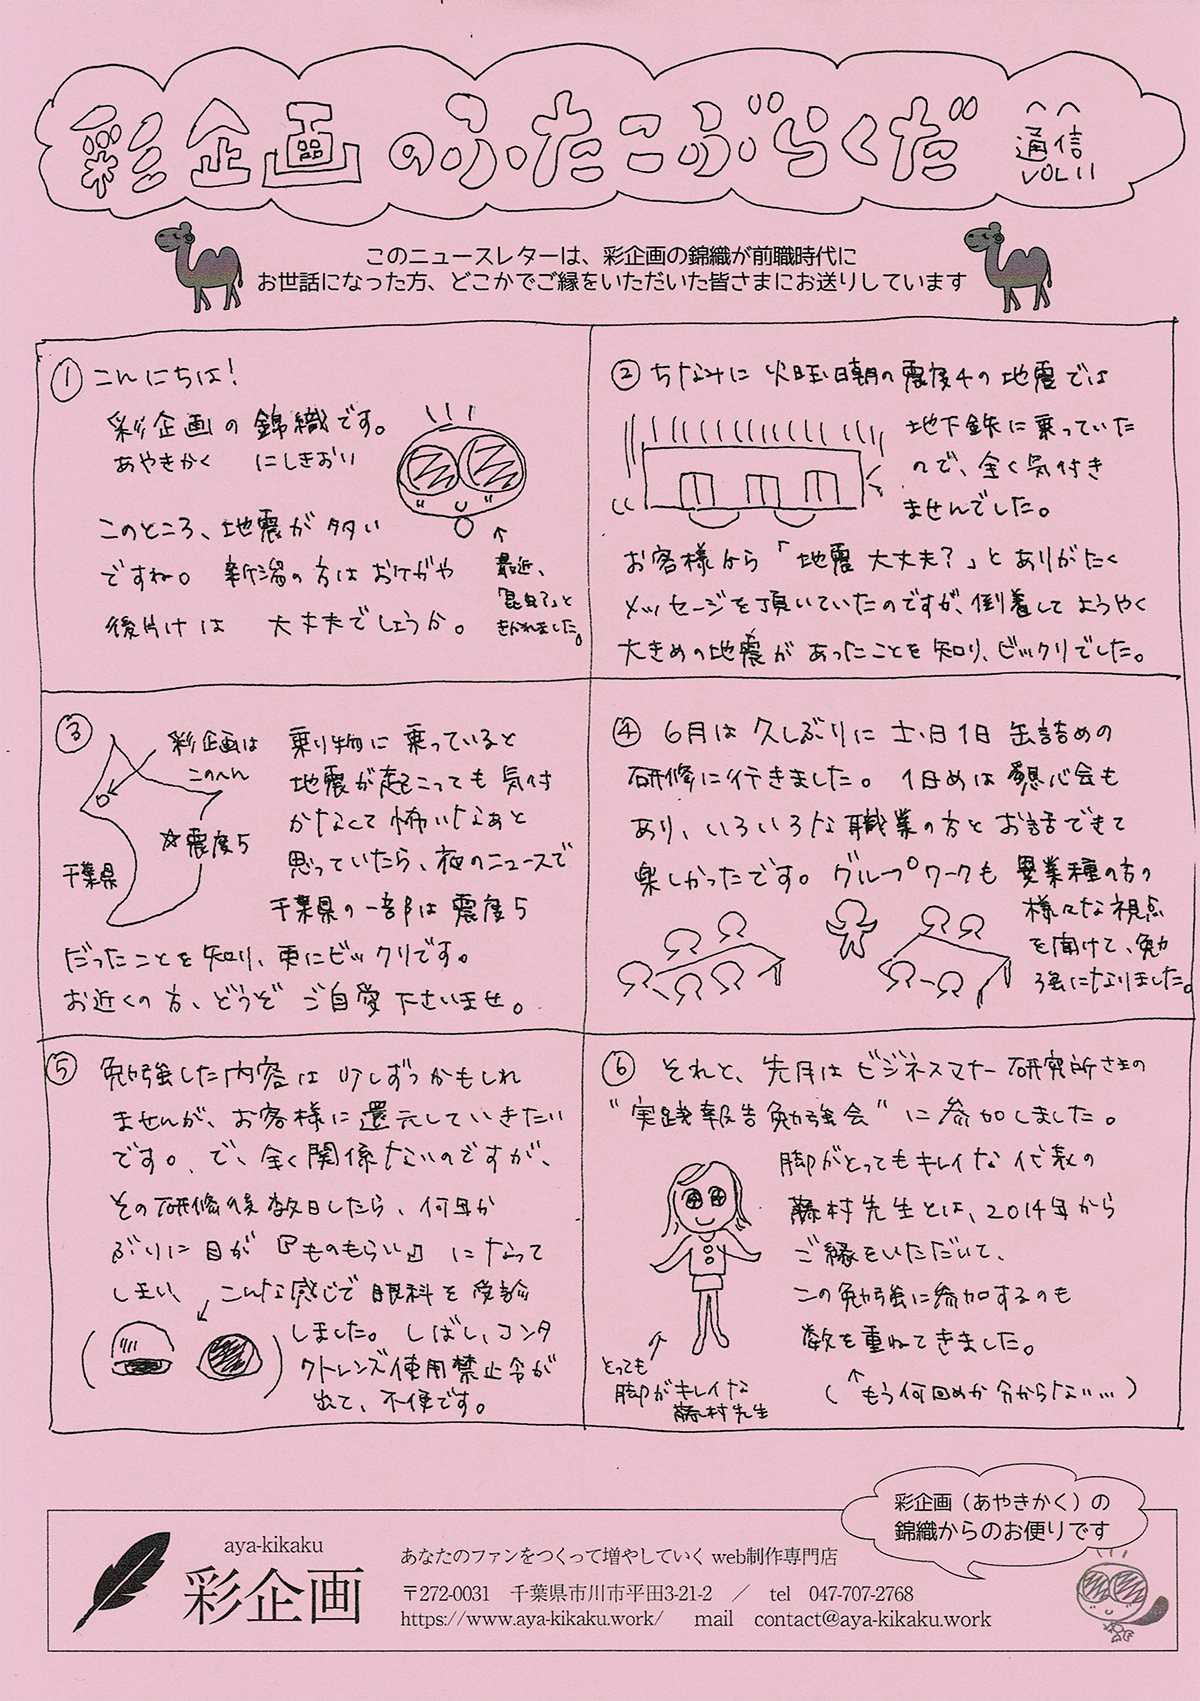 彩企画のふたこぶらくだ
通信
VOL11
このニュースレターは、彩企画の錦織が前職時代に
お世話になった方、どこかでご縁をいただいた皆さまにお送りしています
① こんにちは!
彩企画の錦織です。
あやきかく にしきおり
このところ、地震が多い
ですね。 新潟の方はおケガや
後片けは 大丈夫でしょうか。
↑
最近、
「昆虫?」と
きかれました。
② ちなみに 火曜日朝の震度4の地震では
地下鉄に乗っていた
ので、全く気付き
ませんでした。
お客様から「地震大丈夫?」とありがたく
メッセージを頂いていたのですが、到着してようやく
大きめの地震があったことを知り、ビックリでした。
③
彩企画は
このへん
☆震度5
千葉県
乗り物に乗っていると
地震が起こっても気付
かなくて怖いなぁと
思っていたら、夜のニュースで
千葉県の一部は震度5
だったことを知り、更にビックリです。
お近くの方、どうぞご自愛下さいませ。
④ 6月は久しぶりに土・日1日缶詰めの
研修に行きました。 1日めは懇心会も
あり、いろいろな職業の方とお話できて
楽しかったです。グループワークも異業種の方の
様々な視点
を聞けて、勉
強になりました。
⑤ 勉強した内容は少しずつかもしれ
ませんが、お客様に還元していきたい
です。で、全く関係ないのですが、
その研修後数日したら、何年か
ぶりに目が『ものもらい』になって
しまい、こんな感じで眼科を受診
しました。しばし、コンタ
クトレンズ使用禁止令が
出て、不便です。
⑥ それと、先月はビジネスマナー研究所さまの
"実践報告勉強会"に参加しました。
脚がとってもキレイな代表の
藤村先生とは、2014年から
ご縁をいただいて、
この勉強に参加するのも
数を重ねてきました。
(↑もう何回めか分からない…)
↑
とっても
脚がキレイな
藤村先生
彩企画(あやきかく)の
錦織からのお便りです
aya-kikaku
彩企画
あなたのファンをつくって増やしていくweb制作専門店
〒272-0031 千葉県市川市平田3-21-2 / tel 047-707-2768
https://www.aya-kikaku.work/ mail contact@aya-kikaku.work